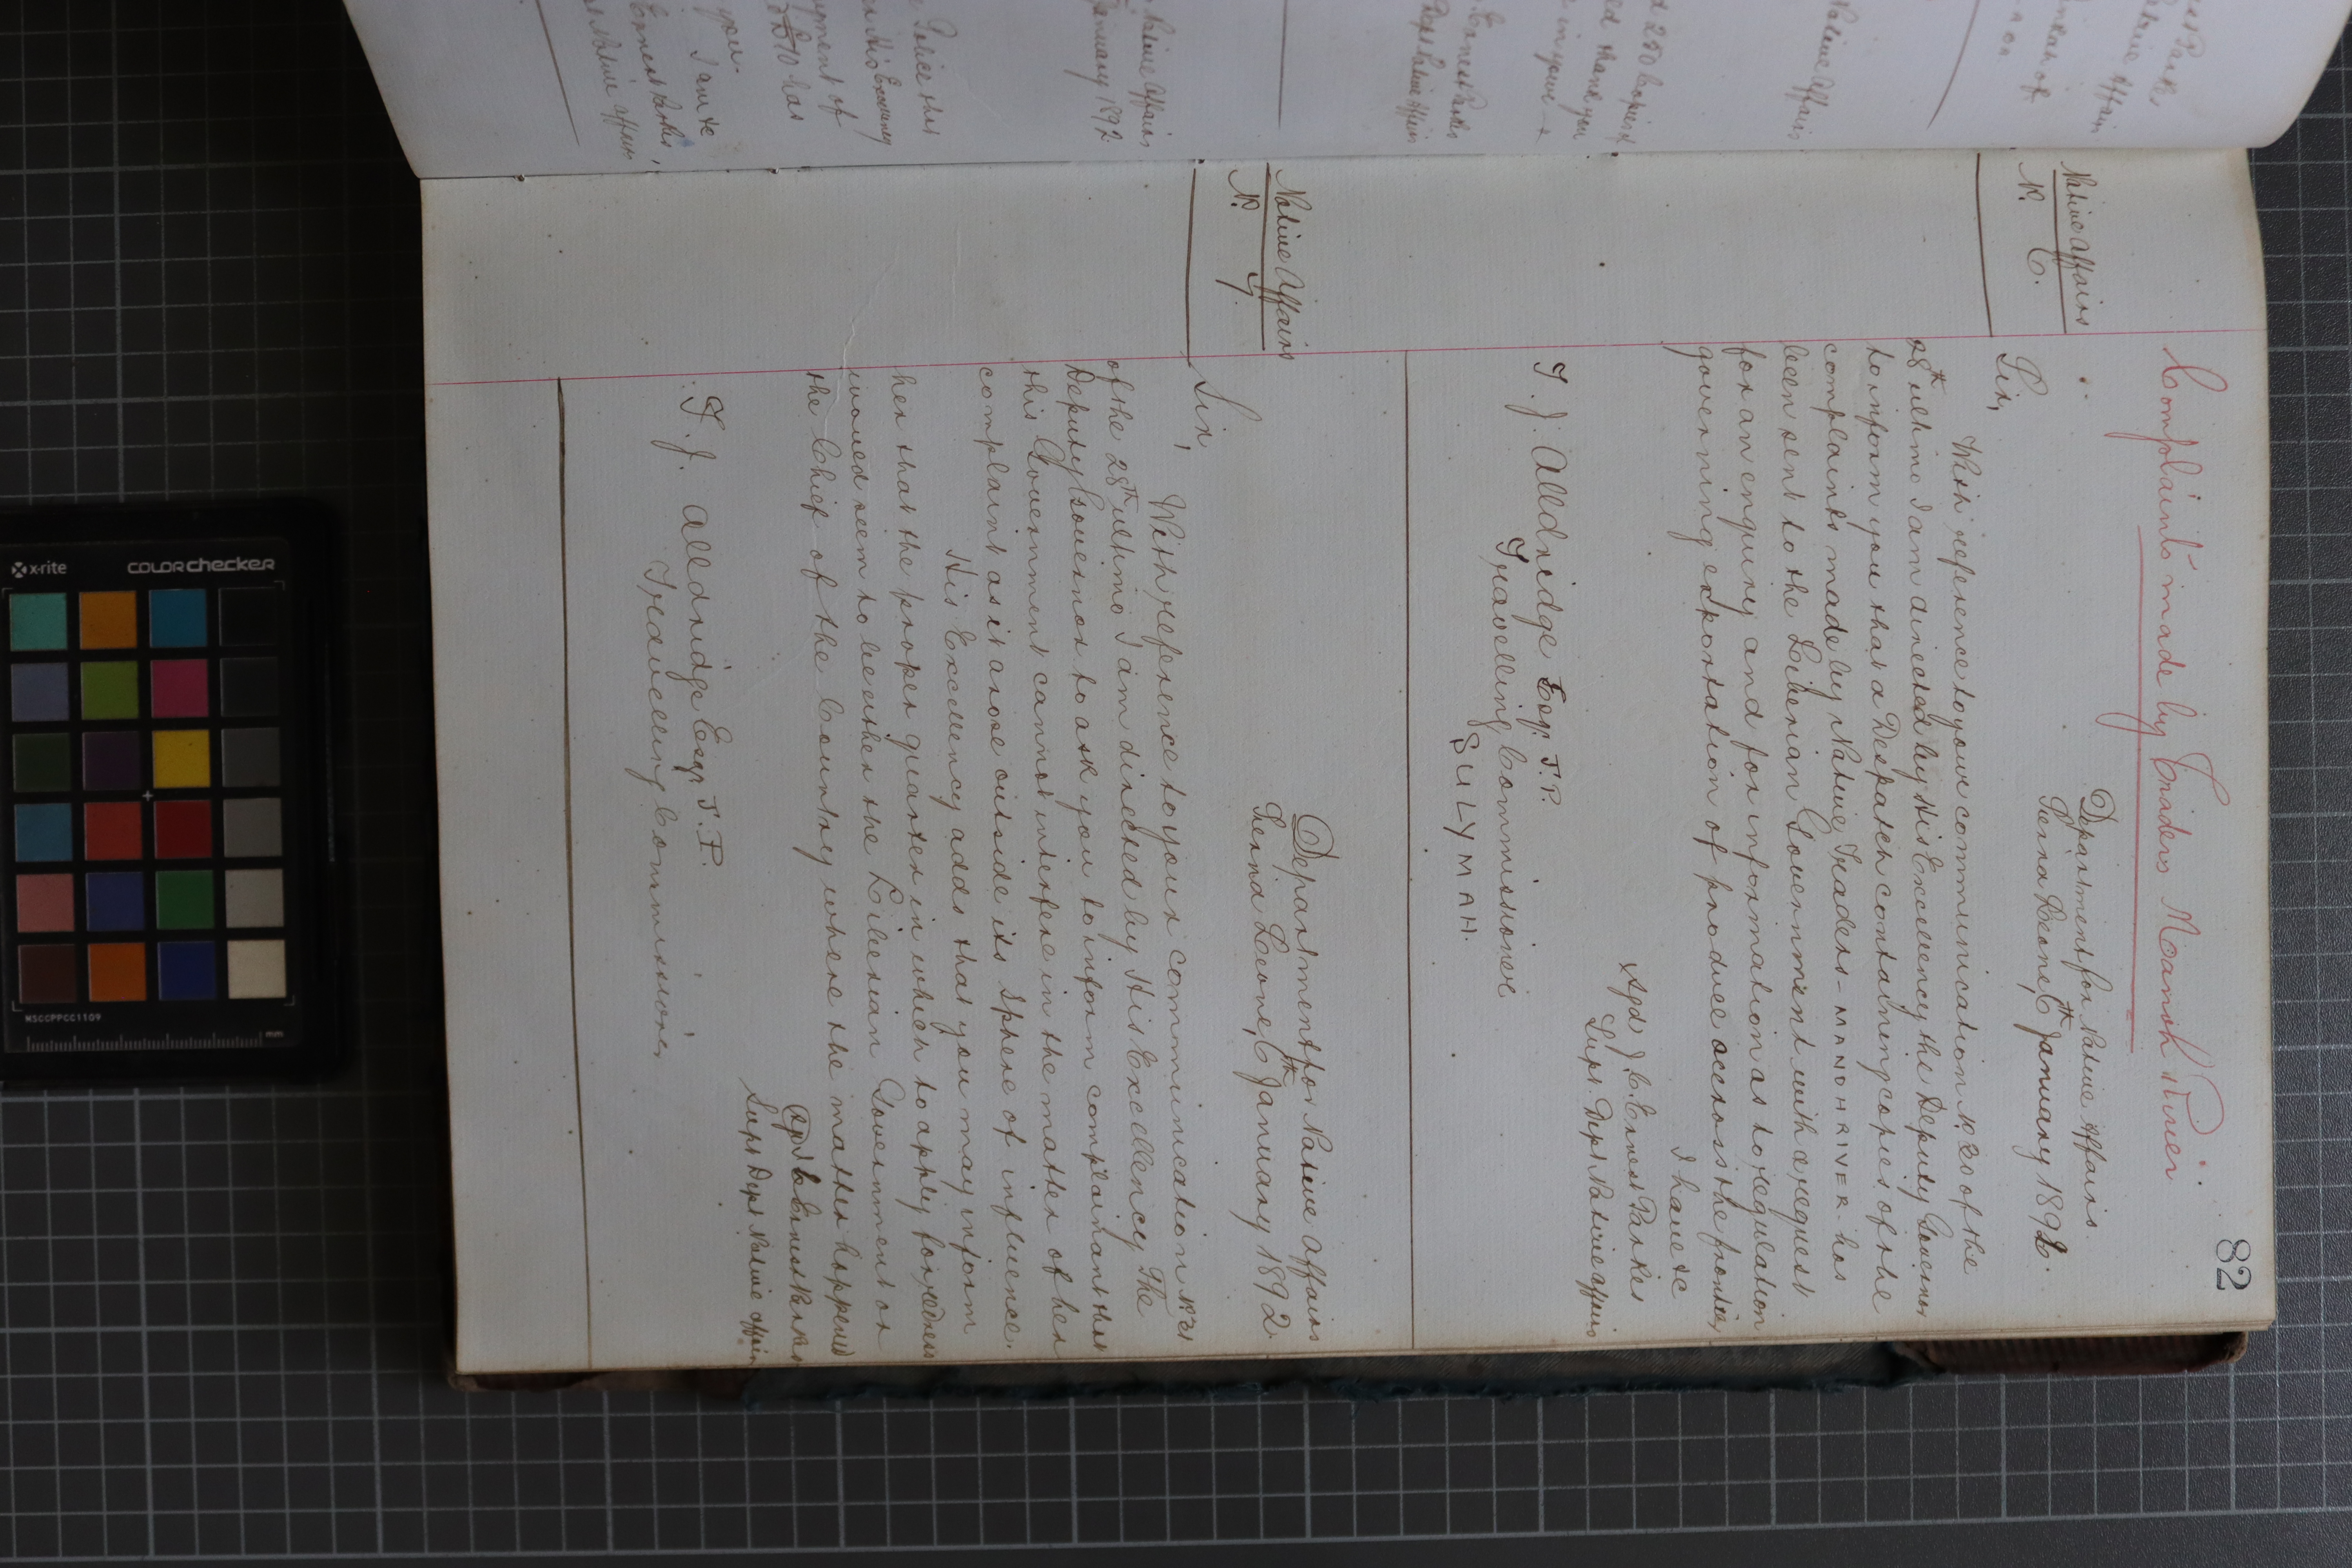 82
Complaints made by Traders Manoh River
Native Affairs
No. 6.
Department for Native Affairs.
Sierra Leone, 6th January 1892.
Sir,
With reference to your communication No. 20 of the
28th ultimo I am directed by His Excellency the Deputy Governor
to inform you that a Despatch containing copies of the
complaints made by Native Traders - MANOH RIVER - has
been sent to the Liberian Government with a request
for an enquiry and for information as to regulation
governing exportation of produce accross the frontier,
I have &c
Sgd J. C. Ernest Parkes
Supt. Dept Native Affairs
T. J. Alldridge Esqr. J.P.
Travelling Commissioner
SULYMAH.
Native Affairs
No. 7.
Department for Native Affairs
Sierra Leone, 6th January 1892.
Sir,
With reference to your communication No. 21
of the 28th ultimo I am directed by His Excellency The
Deputy Governor to ask you to inform complainant that
this Government cannot interfere in the matter of her
complaint as it arose outside its sphere of influence.
His Excellency adds that you may inform
her that the proper quarter in which to apply for redress
would seem to be either the Liberian Government or
the Chief of the Country where the matter happened
Sgd J. C. Ernest Parkes
Supt Dept Native Affairs
T. J. Alldridge Esqr J.P.
Travelling Commissioner
Native Affairs
250 Copies
thank you
in your
Ernest Parkes
Dept Native Affairs
Native Affairs
January 1892
Police that
His Excellency
has
you.
I am &c
Ernest Parkes,
Native Affairs
x-rite
COLORchecker
MSCCPPCC1109
mm